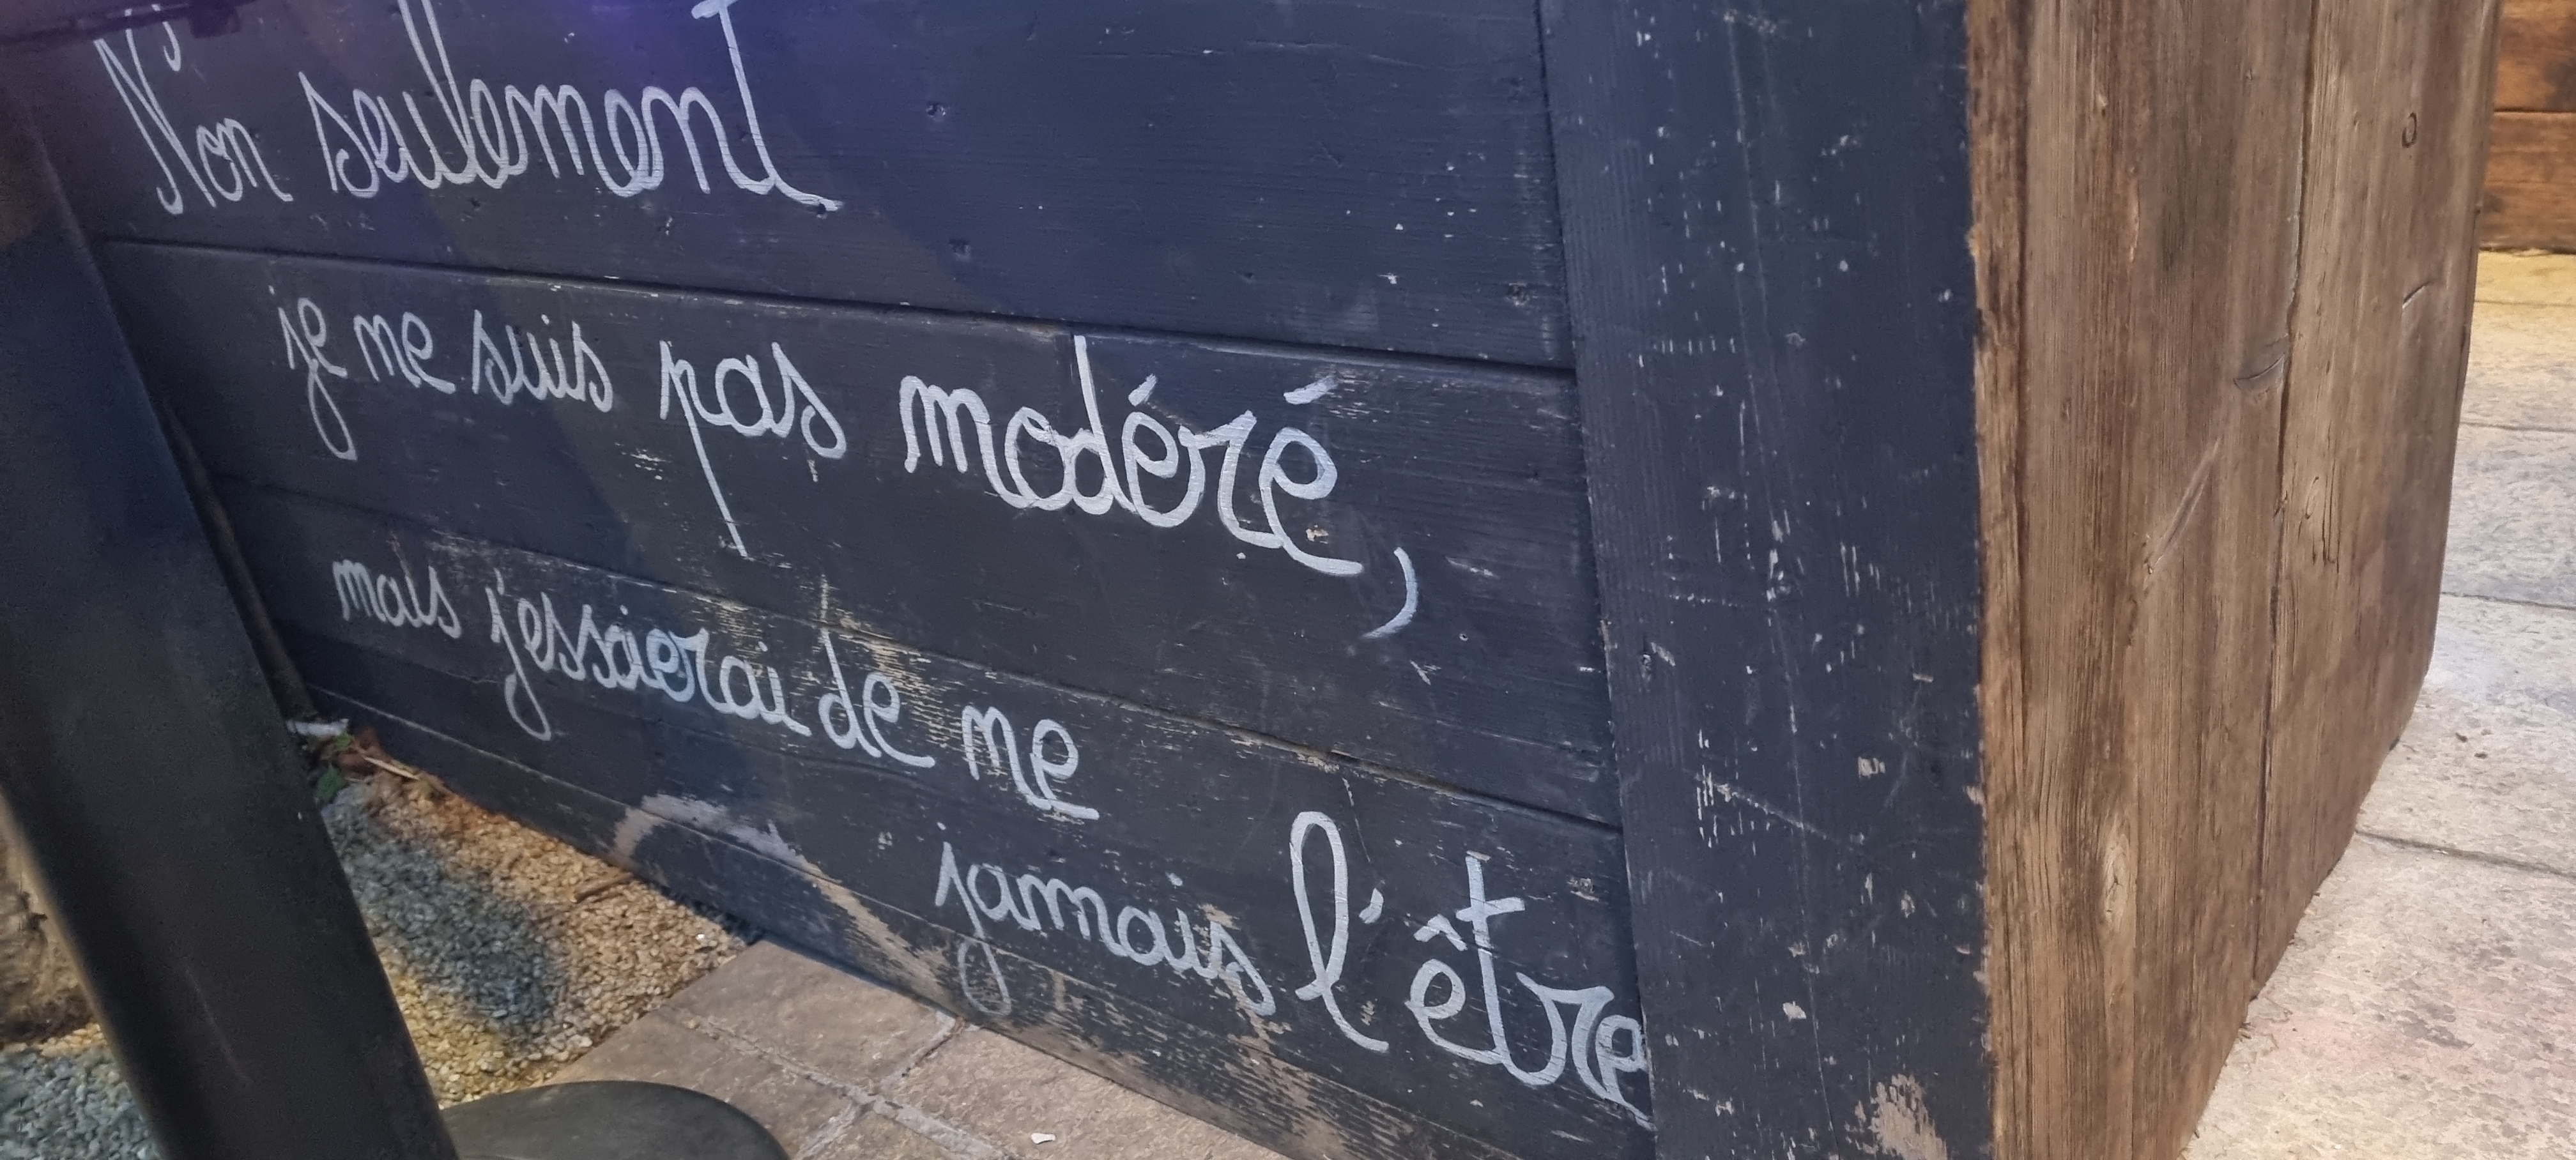 Non seulement
je me suis pas modéré,
mais j'essaierai de me
jamais l'être